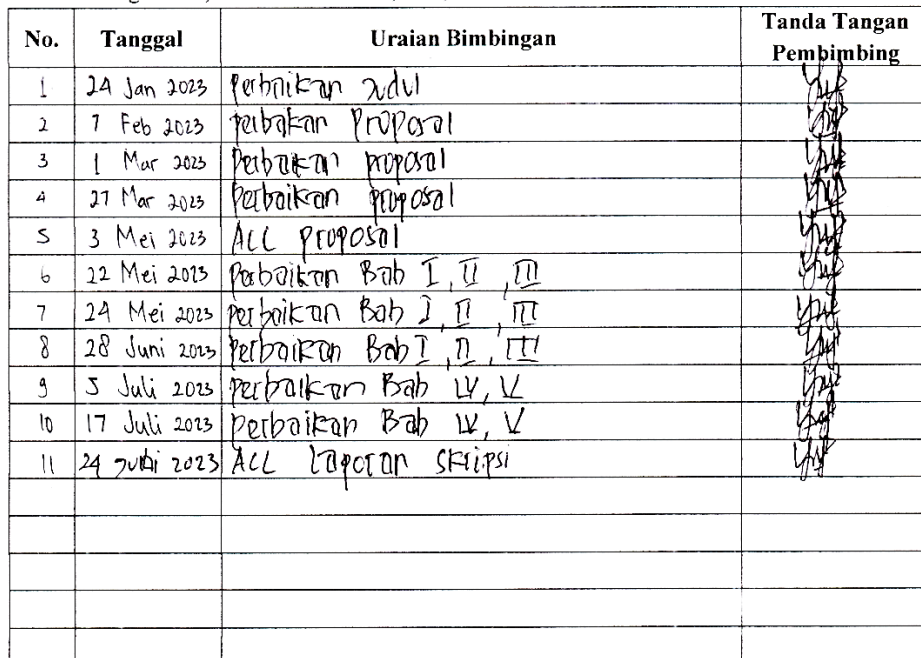 No. Tanggal Uraian Bimbingan Tanda Tangan Pembimbing
1 24 Jan 2023 Perbaikan Judul
2 7 Feb 2023 perbaikan Proposal
3 1 Mar 2023 Perbaikan proposal
4 27 Mar 2023 Perbaikan proposal
5 3 Mei 2023 ACC proposal
6 22 Mei 2023 Perbaikan Bab I, II, III
7 24 Mei 2023 perbaikan Bab I, II, III
8 28 Juni 2023 perbaikan Bab I, II, III
9 5 Juli 2023 perbaikan Bab IV, V
10 17 Juli 2023 perbaikan Bab IV, V
11 24 Juli 2023 ACC Laporan Skripsi